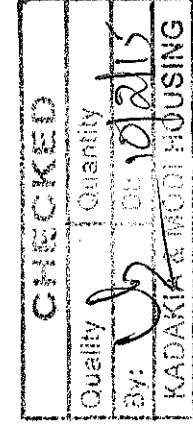 CHECKED
Quality Quantity
By: Dt: 10/2/15
KADAKIA & MODI HOUSING